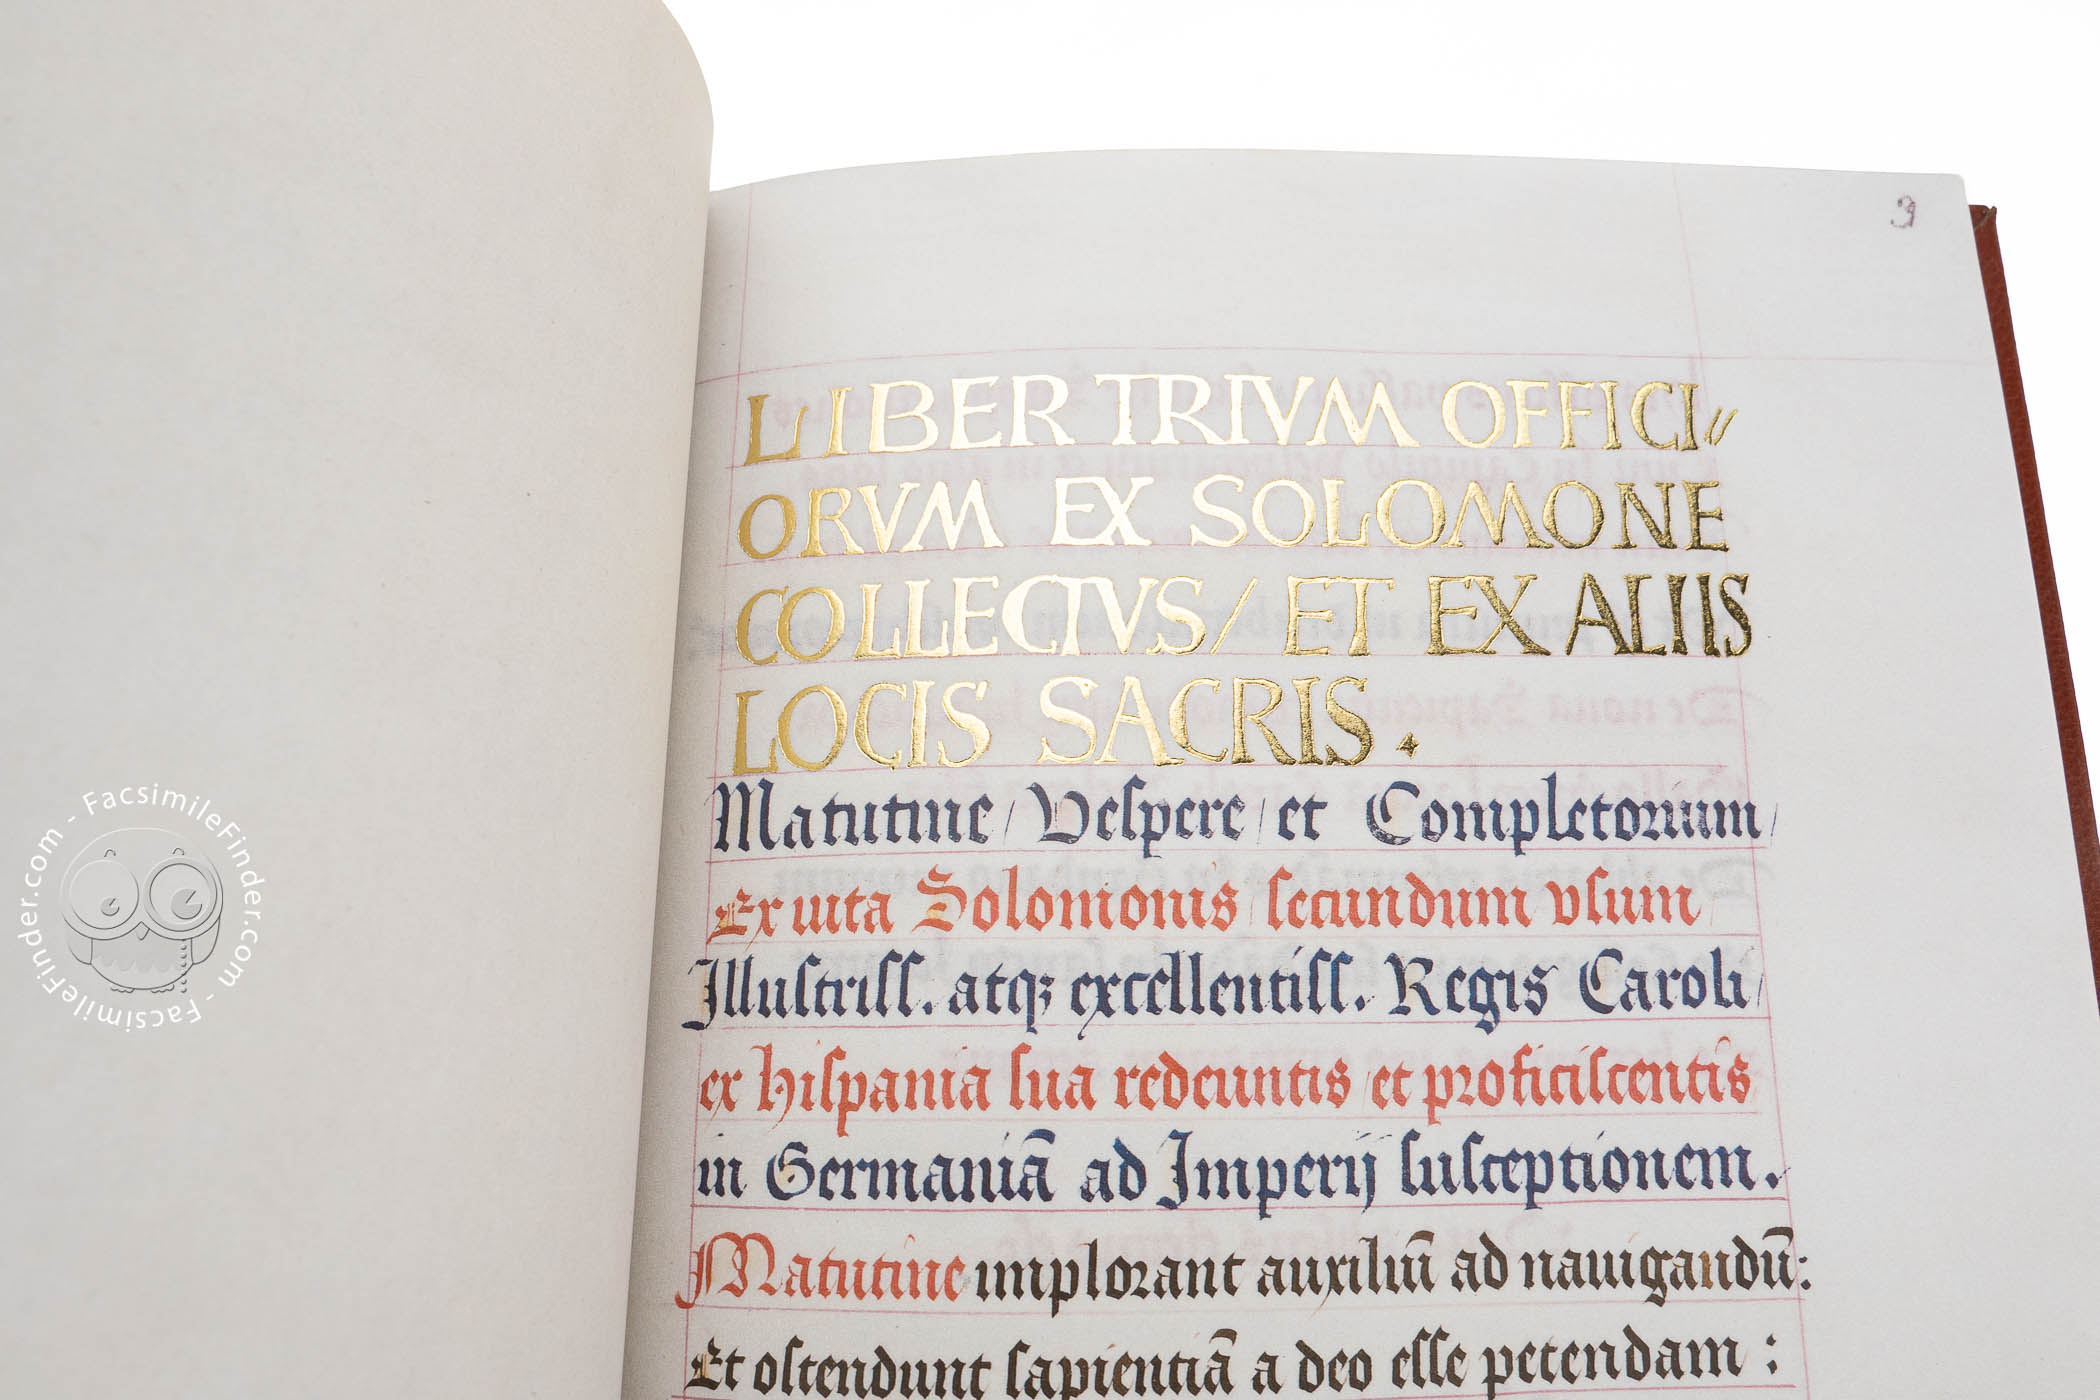 FacsimileFinder.com - FacsimileFinder.com -
3
LIBER TRIVM OFFICI//
ORVM EX SOLOMONE
COLLECTVS/ ET EX ALIIS
LOCIS SACRIS.
Matutine/ Vespere/ et Completorium/
Ex uita Solomonis/ secundum vsum/
Illustriss. atqꝫ excellentiss. Regis Caroli/
ex hispania sua redeuntis/ et proficiscentis
in Germaniā ad Imperij susceptionem.
Matutine implorant auxiliū ad nauigandū:
Et ostendunt sapientiā a deo esse petendam :